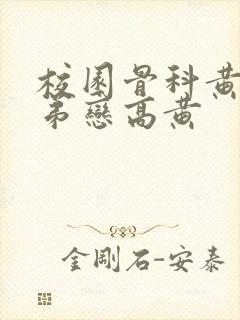 校園骨科黃
弟戀高黃
金剛石-安泰